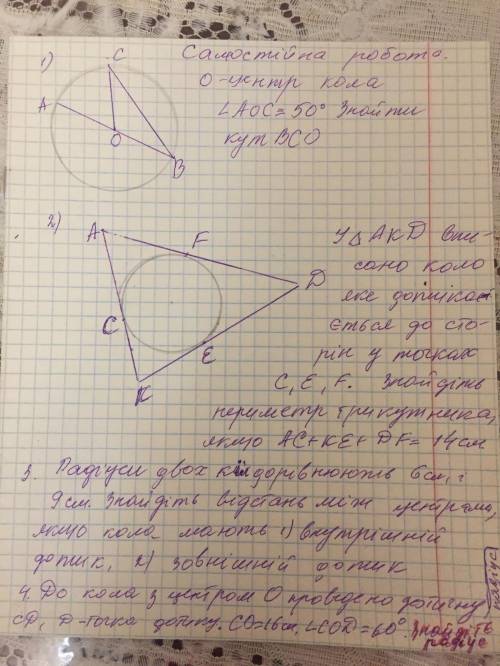 Самостійна робота.
1)
O-центр кола
∠AOC=50° Знайти
кут BCO
C
A
O
B
2)
У △ AKD впи-
сано коло
яке дотикає
ється до сто-
рін у точках
C, E, F. Знайдіть
периметр трикутника,
якщо AC+KE+DF=14см
A
F
D
C
E
K
3. Радіуси двох кіл дорівнюють 6см, і
9см. Знайдіть відстань між центрами,
якщо кола мають 1) внутрішній
дотик, 2) зовнішній дотик
4. До кола з центром O проведено дотичну
CD, D-точка дотику. CO=16см, ∠COD=60°. Знайдіть
радіус